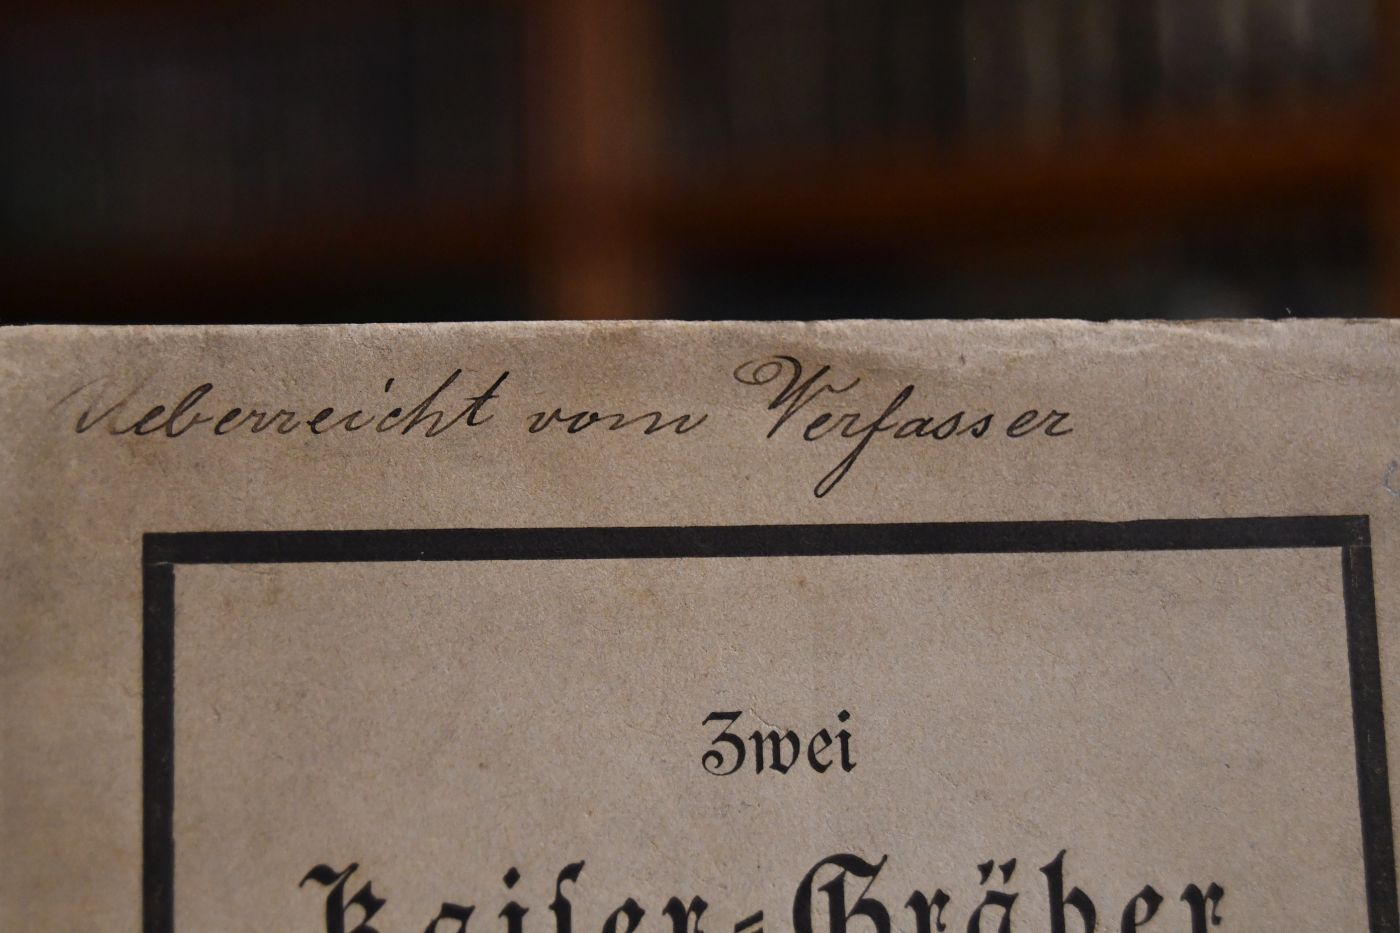 Ueberreicht vom Verfasser
Zwei
Kaiser-Gräber